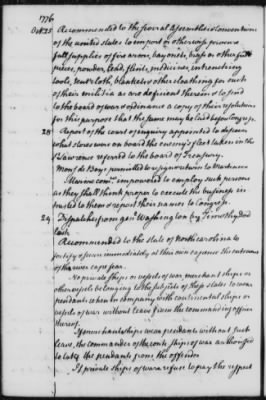 1776
Oct 25 Recommended to the several Assemblies & conventions
of the united states to import or otherwise procure
full supplies of fire arms, bayonets, brass or other field
pieces, powder, lead, flints, medicines, entrenching
tools, tent cloth, blankets & other cloathing for such
of their militia as are deficient therein & to send
to the board of war & ordnance a copy of their resolutions
for this purpose that the same may be laid before congress.
28 Report of the court of enquiry appointed to
what stores were on board the enemy's fleet taken in the
St Lawrence referred to the board of Treasury.
Mons. de Bois permitted to return to Martinico
Marine comee. impowered to employ such persons
as they shall think proper to execute the business in
trusted to them & report their names to Congress.
29 Dispatches from genl. Washington by
Recommended to the state of North carolina to
fortify & secure immediately at their own expence the entrance
of the river cape fear.
No private ships or vessels of war, merchant ships or
other vessels belonging to the subjects of these states to wear
pendants when in company with continental ships or
vessels of war without leave from the commanding officer
thereof.
If merchant ships wear pendants without such
leave, the commander of the contl. ships of war authorised
to take the pendants from the offender
If private ships of war refuse to pay the respect